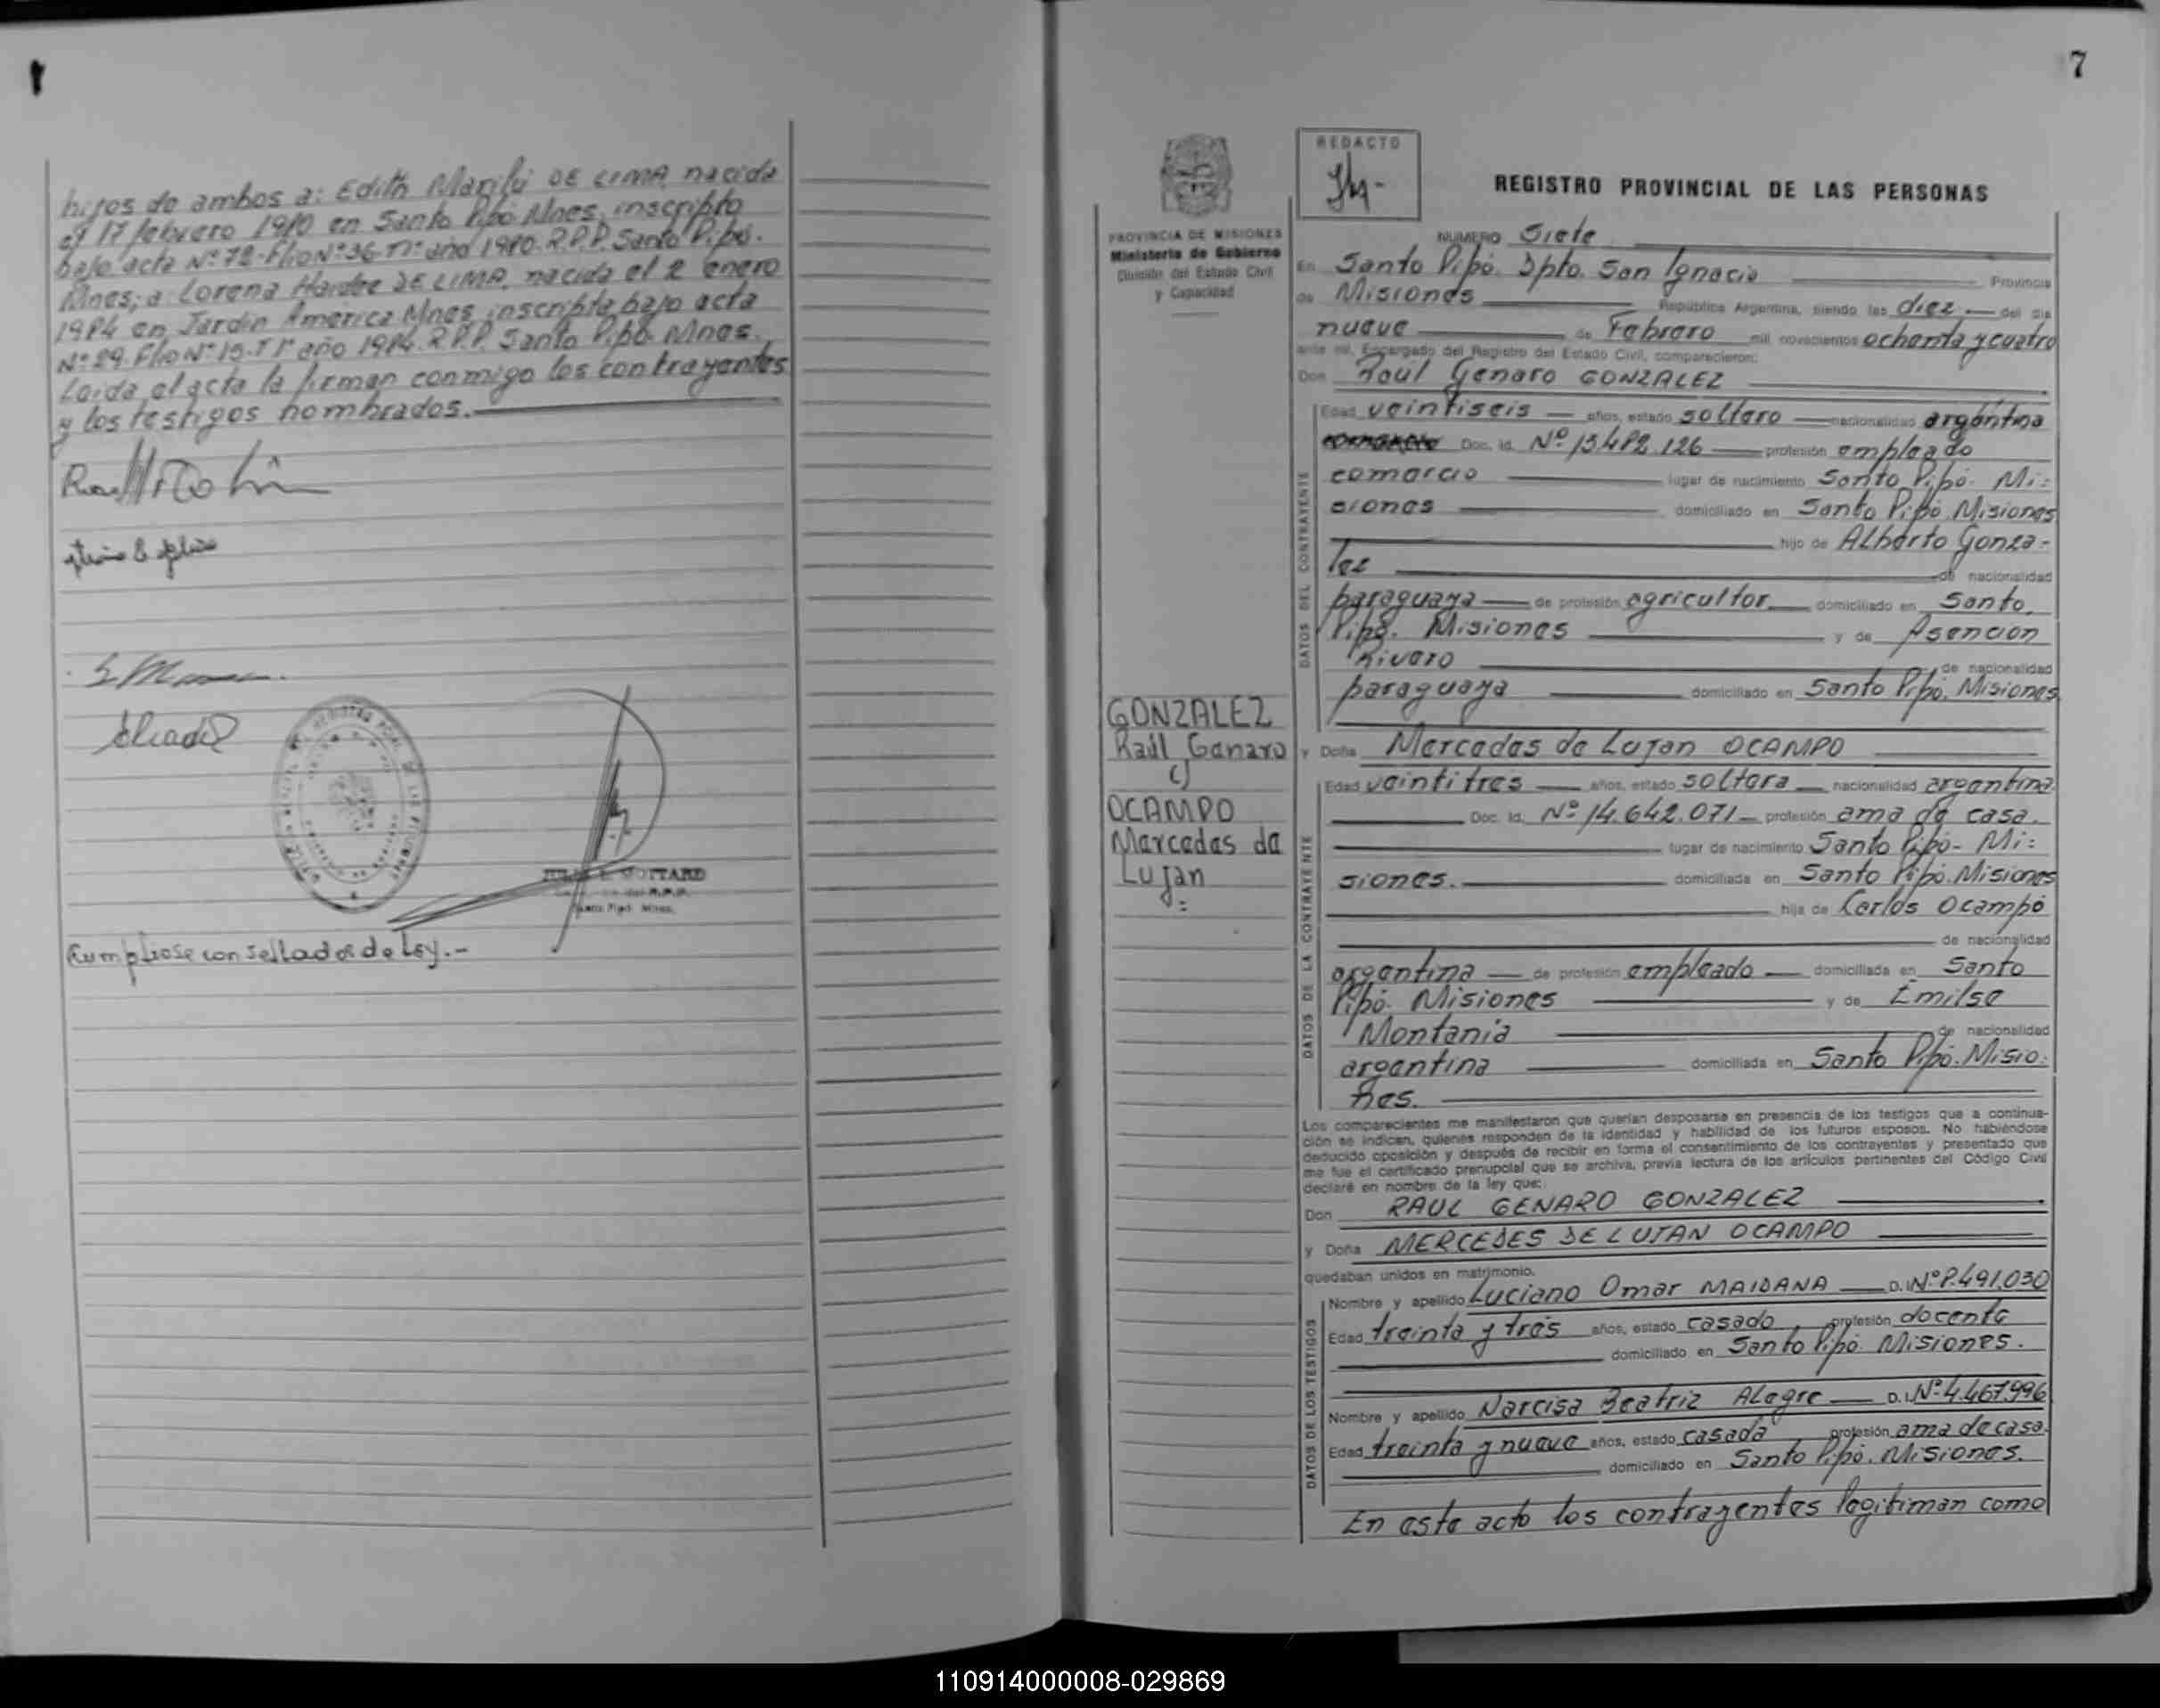 hijos de ambos a: Edith Marilú DE LIMA nacida
el 17 febrero 1980 en Santo Pipó Mnes. inscripto
bajo acta Nº 72-Flio Nº 36-Tº año 1980. R.P.P. Santo Pipó.
Mnes; a: Lorena DE LIMA, nacida el 2 enero
1984 en Jardin America Mnes inscripta bajo acta
Nº 29. Flio Nº 15-T1º año 1984. R.P.P. Santo Pipó. Mnes.
Laida el acta la firman conmigo los contrayentes
y los testigos nombrados.
Cumpliose con sellados de Ley.-
7
REDACTO
REGISTRO PROVINCIAL DE LAS PERSONAS
PROVINCIA DE MISIONES
Ministerio de Gobierno
División del Estado Civil
y Capacidad
NUMERO Siete
En Santo Pipó. Dpto. San Ignacio Provincia
de Misiones República Argentina, siendo las diez del día
nueve de Febrero mil novecientos ochenta y cuatro
ante mí, Encargado del Registro del Estado Civil, comparecieron:
Don Raul Genaro GONZALEZ
DATOS DEL CONTRAYENTE
Edad veintiseis años, estado soltero nacionalidad argentina
Doc. Id. Nº 13.482.126 profesión empleado
comercio lugar de nacimiento Santo Pipó. Mi=
siones domiciliado en Santo Pipó Misiones
hijo de Alberto Gonza-
lez de nacionalidad
paraguaya de profesión agricultor domiciliado en Santo
Pipó. Misiones y de Asencion
Rivero de nacionalidad
paraguaya domiciliado en Santo Pipó. Misiones
GONZALEZ
Raúl Genaro
c/
OCAMPO
Mercedes de
Lujan
=
y Doña Mercedes de Lujan OCAMPO
DATOS DE LA CONTRAYENTE
Edad veintitres años, estado soltera nacionalidad argentina
Doc. Id. Nº 14.642.071 profesión ama de casa.
lugar de nacimiento Santo Pipó- Mi=
siones. domiciliada en Santo Pipó. Misiones
hija de Carlos Ocampo
de nacionalidad
argentina de profesión empleado domiciliada en Santo
Pipó. Misiones y de Emilse
Montania de nacionalidad
argentina domiciliada en Santo Pipó. Misio=
nes.
Los comparecientes me manifestaron que querían desposarse en presencia de los testigos que a continua-
ción se indican, quienes responden de la identidad y habilidad de los futuros esposos. No habiéndose
deducido oposición y después de recibir en forma el consentimiento de los contrayentes y presentado que
me fue el certificado prenupcial que se archiva, previa lectura de los artículos pertinentes del Código Civil
declaré en nombre de la ley que:
Don RAUL GENARO GONZALEZ
y Doña MERCEDES DE LUJAN OCAMPO
quedaban unidos en matrimonio.
DATOS DE LOS TESTIGOS
Nombre y apellido Luciano Omar MAIDANA D.I. Nº 8.491.030
Edad treinta y tres años, estado casado profesión docente
domiciliado en Santo Pipó. Misiones.
Nombre y apellido Narcisa Beatriz Alegre D.I. Nº 4.467.996
Edad treinta y nueve años, estado casada profesión ama de casa.
domiciliado en Santo Pipó. Misiones.
En este acto los contrayentes legitiman como
110914000008-029869